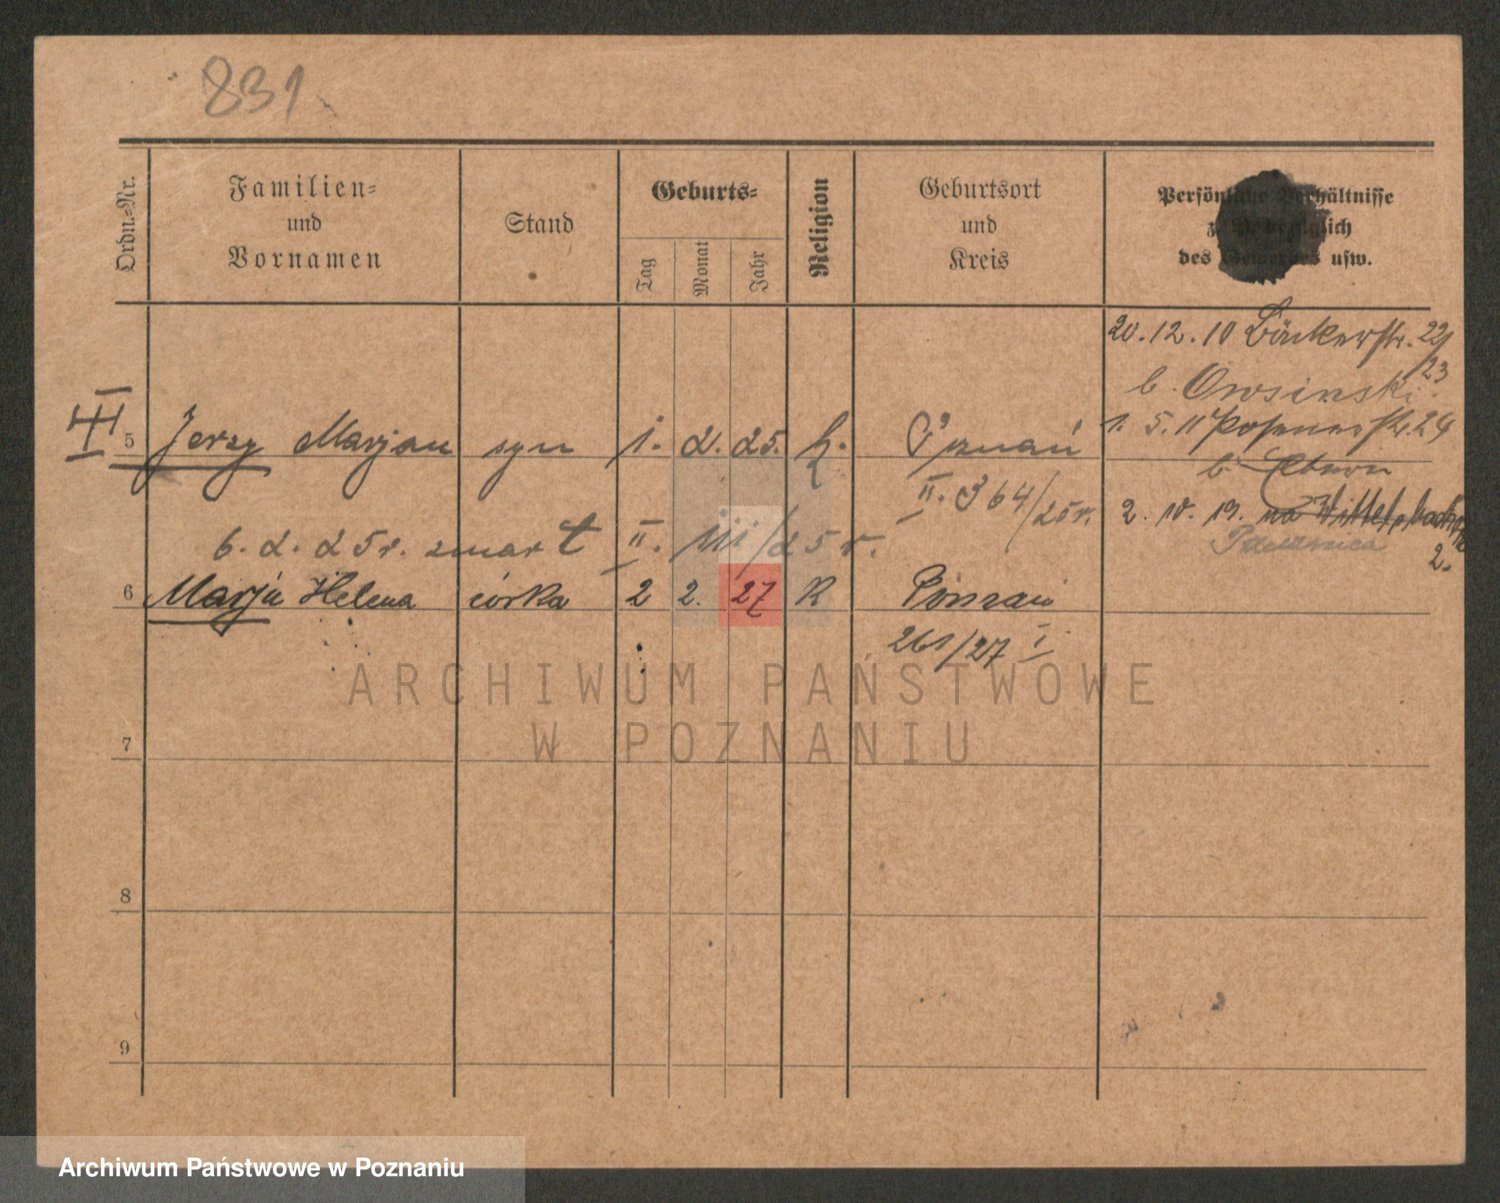 831
Ordn.-Nr.
Familien-
und
Vornamen
Stand
Geburts-
Tag
Monat
Jahr
Religion
Geburtsort
und
Kreis
Persönliche Verhältnisse
des Gewerbes usw.
20. 12. 10 Bäckerstr. 22/
23
b. Owsinski.
III 5 Jerzy Marjan syn 1. 2. 25. k. Poznań
1. 5. 11 Posenerstr. 24
II. 364/25 r.
b.
2. 10. 19.
2.
6. 2. 25 r. zmarł II. 111/25 r.
6 Marja Helena córka 2 2. 27 K Poznań
261/27 I
ARCHIWUM PAŃSTWOWE
W POZNANIU
7
8
9
Archiwum Państwowe w Poznaniu